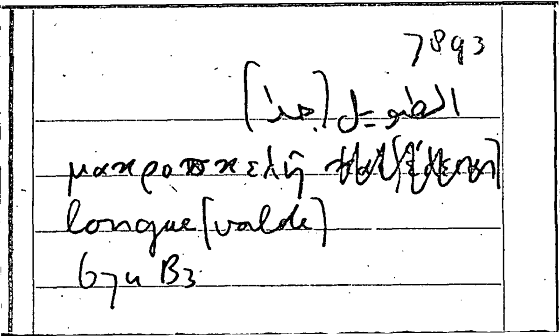 7893
الطويل (جدا)
μακροσκελῆ
longue (valde)
674 B3